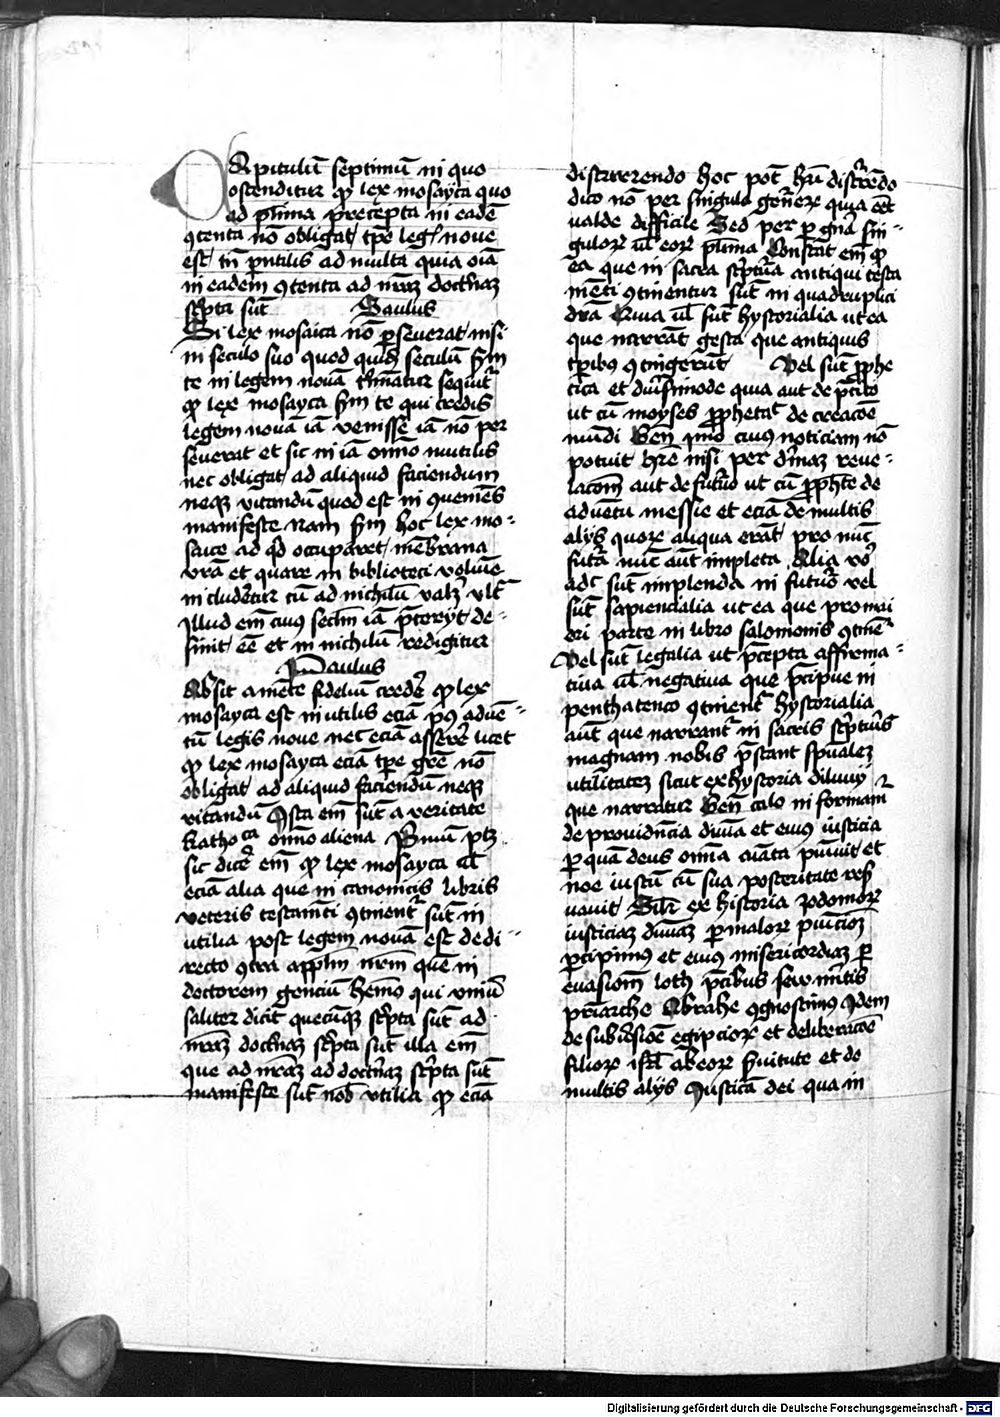 Capitulū septimū in quo
ostenditur qͦ lex mosayca quo
ad plīma precepta in eadē
ꝯtenta nō obligat tꝑe legꝭ noue
est tn̄ ꝑutilis ad multa quia oīa
in eadem ꝯtenta ad nr̄aꝫ doctnaꝫ
scͥpta sūt Saulus
Si lex mosaica nō ꝑseuerat nisi
in seculo suo quod quidē seculū scd̄m
te in legem nouā t̓minatur sequit᷑
qͦ lex mosayca scd̄m te qui credis
legem nouā iā venisse iā nō per
seuerat et sic in iā om̄ino inutilis
nec obligat ad aliquid faciendum
neqꝫ vitandū quod est incōueniēs
manifeste Nam scd̄m hoc lex mo-
sayce ad qͥd occuparet mēbrana
vr̄a et quare in biblioteci volūīe
includeretur cū ad nichilū valꝫ vlt̓
Illud em̄ cuiꝰ seclm̄ iā p̄teryt de-
sinit eē et in nichilū redigitur
Paulus
Absit a mente fidelium crede̓ qͦ lex
mosayca est inutilis eciā pꝰ aduē-
tū legis noue nec eciā assere̓ licet
qͦ lex mosayca eciā tꝑe grē nō
obligat ad aliquid faciendū neqꝫ
vitandū Ista em̄ sūt a veritate
kathoca om̄ino aliena Primū ptꝫ
sic dice̓ em̄ qͦ lex mosayca vl̄
eciā alia que in canonicis libris
veteris testamēti ꝯtinent᷑ sūt in
utilia post legem nouā est de di-
recto ꝯtra aplm̄ nr̄m quē in
doctorem genciū hēmꝰ qui vniū
saliter dicit quecūqꝫ scͥpta sūt ad
nr̄aꝫ doctnaꝫ scͥpta sūt illa em̄
que ad nr̄aꝫ ad doctnaꝫ scͥpta sūt
manifeste sūt nob̄ vtilia qͦ eciā
discurrendo hoc pōt hr̄i discurrēdo
dico nō per singula genere quia eēt
valde difficile Sed per ꝑ gn̄a sin-
guloꝝ vl̄ eoꝝ plīma Constat em̄ qͦ
ea que in sacra scͥptura antiqui testa
mēti ꝯtinentur sūt in quadruplici
dr̄a Quia vl̄ sūt hystorialia ut ea
que narrāt gesta que antiquis
tꝑibus ꝯtingerūt Vel sūt ꝓphe
tica et diūsimode quia aut de p̄tito
ut cū moyses ꝓphetat de creacōe
mūdi Gen̄ pͥmo cuius noticiam nō
potuit hr̄e nisi per dīnaꝫ reue-
lacōm aut de futuro ut cū ꝓphete de
aduētu messie et eciā de multis
alijs quoꝝ aliqua erāt pro nūc
futa nūc aūt impleta Alia vo̓
adc̄ sūt implenda in futuro vel
sūt sapiencialia ut ea que pro mai
ori parte in libro salomonis ꝯtinē
Vel sūt legalia ut p̄cepta affirma-
tiua vl̄ negatiua que p̄cipue in
penthatenco ꝯtinent᷑ hystorialia
aūt que narrant᷑ in sacris scͥpturis
magnam nobis p̄stant spūalez
utilitatez sicut ex hystoria diluuij
que narratur Gen̄
de prouidn̄cia diuīa et eius iusticia
ꝑ quā deus om̄ia puniuit et
noe iustū cū sua posteritate res̓
uauit Silr̄ ex historia zodomoꝝ
iusticiaꝫ diuīaꝫ ꝑ maloꝝ punicōeꝫ
ꝑcipimus et eius misericordiaꝫ ꝑ
euasiom̄ loth p̄cibus seu
pr̄iarche Abrahe ꝯgnoscimus Idem
de subm̄sione egipcioꝝ et deliberacōe
filioꝝ isrl̄ ab eoꝝ seruitute et de
multis alijs Iusticiā dei qua in
Digitalisierung gefördert durch die Deutsche Forschungsgemeinschaft - DFG